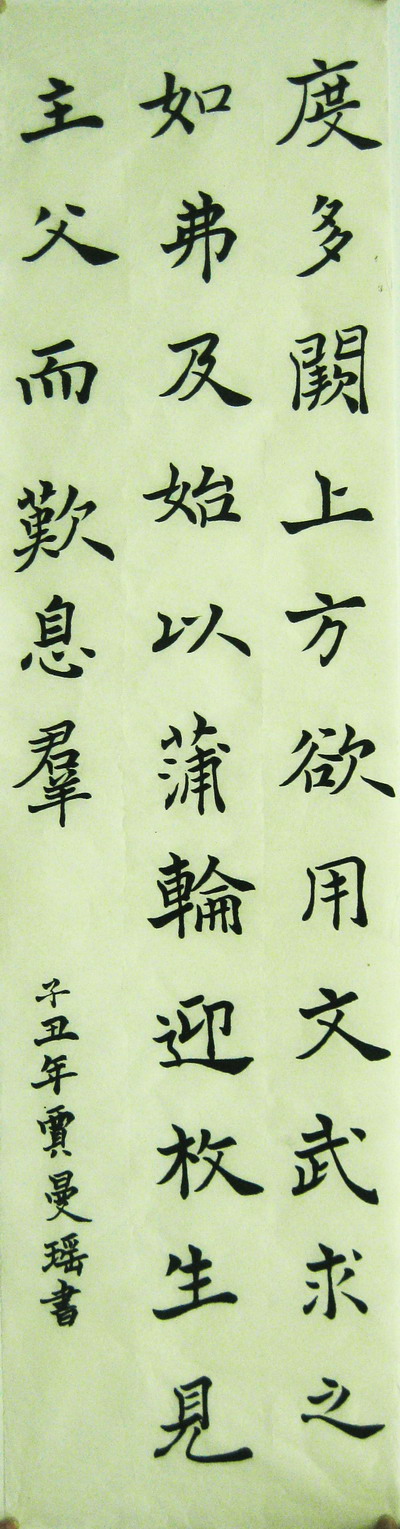 度多闕上方欲用文武求之
如弗及始以蒲輪迎枚生見
主父而歎息羣
子丑年賈曼瑶書